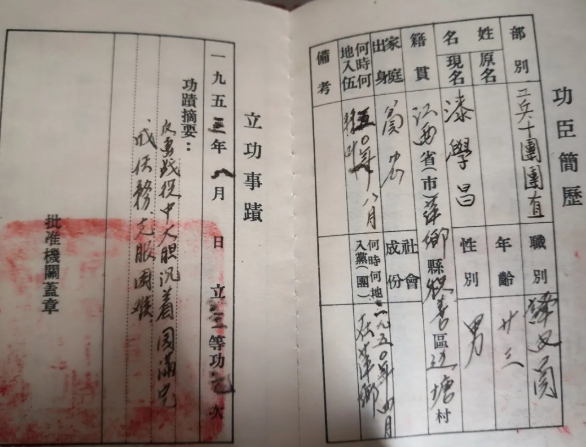 功臣簡歷
部別 工兵十團團直 職別 譯文員
姓名 原名 年齡 廿三
現名 漆學昌 性別 男
籍貫 江西省(市)萍鄉縣 區 塘村
家庭出身 富农 社會成份
何時何地入伍 五〇年八月 何時何地入黨(團) 一九五〇年四月在萍鄉
備考
立功事蹟
一九五三年八月 日 立三等功 次
功蹟摘要:
战役中大胆沉着圆滿完
成任務克服困难
批准機關蓋章